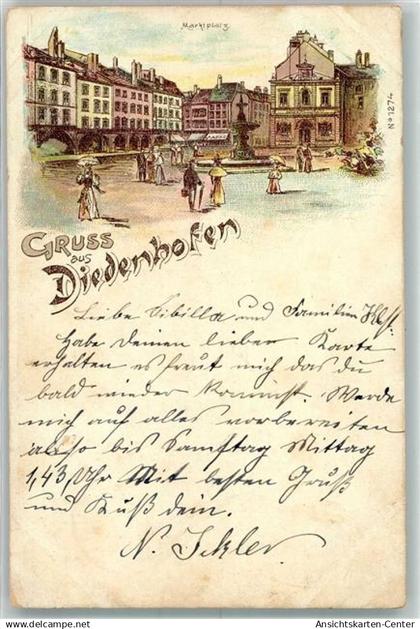 Marktplatz
No 1274
GRUSS
aus
Diedenhofen
Liebe Sibilla und Familie
Habe Deinen lieben Karte
erhalten es freut mich das du
bald wieder kommst. Werde
mich auf alles vorbereiten
also bis Samstag Mittag
1,43, Uhr Mit besten Gruß
und Kuß dein.
N. Ickler
oldthing.de
Ansichtskarten-Center